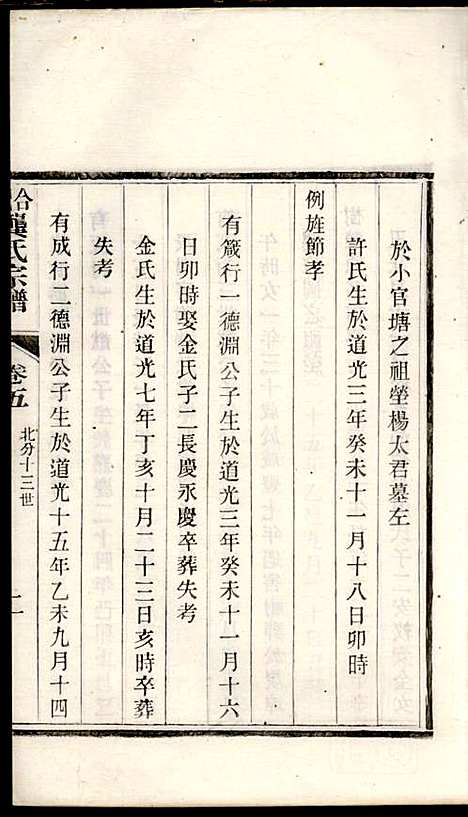 於小官塘之祖塋楊太君墓左
許氏生於道光三年癸未十一月十八日卯時
例旌節孝
有箴行一德淵公子生於道光三年癸未十一月十六
日卯時娶金氏子二長慶永慶卒葬失考
金氏生於道光七年丁亥十月二十三日亥時卒葬
失考
有成行二德淵公子生於道光十五年乙未九月十四
龔氏宗譜
卷五
北分十三世